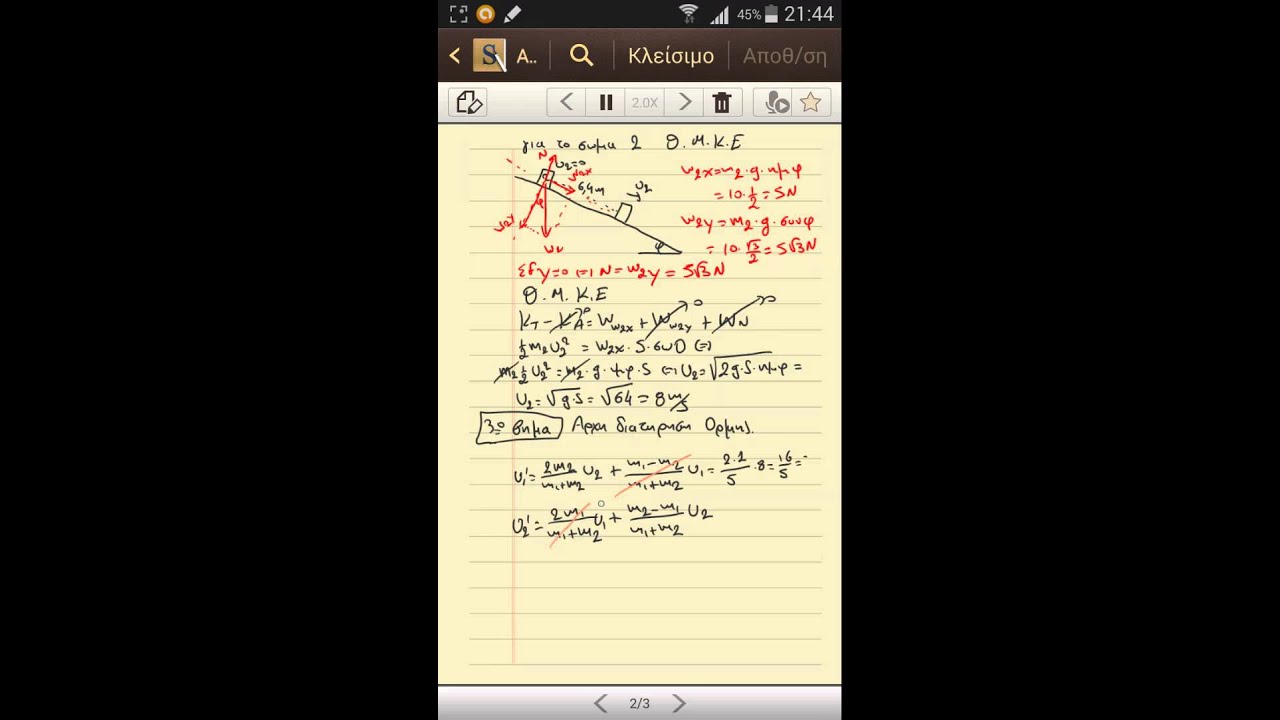 45% 21:44
S Α.. Κλείσιμο Αποθ/ση
2.0X
για το σωμα 2 Θ.Μ.Κ.Ε
N
U2=0
W2x
6,4m
U2
W2y
φ
φ
W2x=m2·g·ημφ
=10·1/2=5N
W2y=m2·g·συνφ
=10·√3/2=5√3N
Σfy=0 (=) N=W2y=5√3N
Θ.Μ.Κ.Ε
Kτ-KA^0=Ww2x+Ww2y^0+WN^0
1/2m2U2²=W2x·S·συν0 (=)
m2 1/2 U2²=m2·g·ημφ·S (=) U2=√2g·S·ημφ=
U2=√g·S=√64=8m/s
3ο βημα Αρχη διατηρηση Ορμης.
U1'=2m2/m1+m2 U2+m1-m2/m1+m2 U1=2·2/5·8=16/5=
U2'=2m1/m1+m2 U1^0+m2-m1/m1+m2 U2
2/3